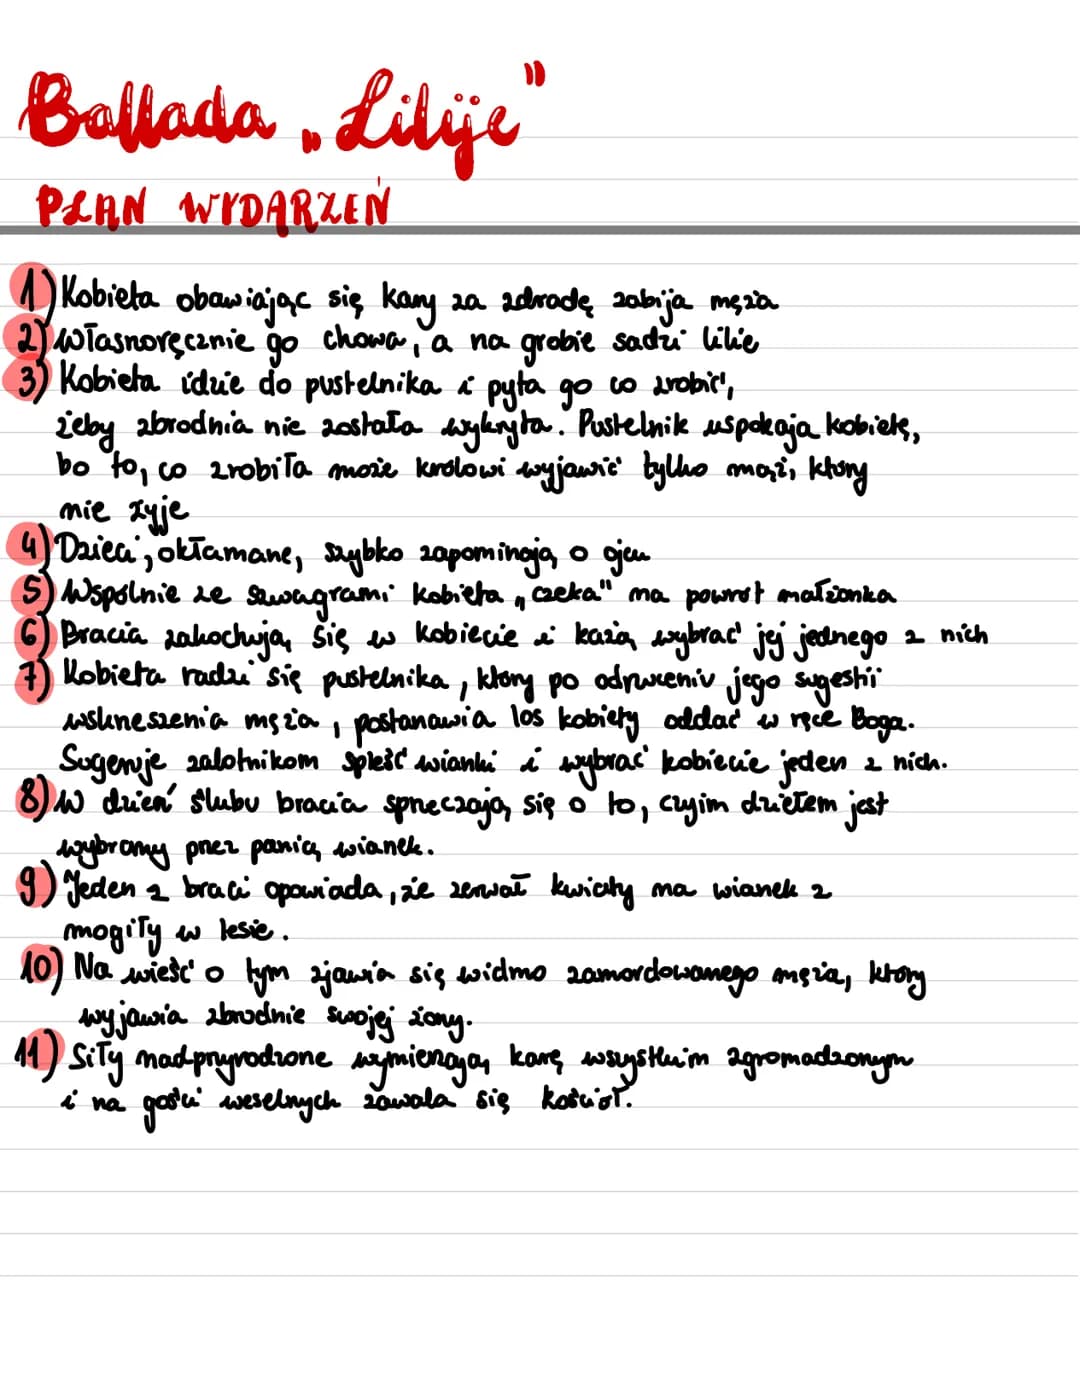 Ballada „Lilije”
PLAN WYDARZEŃ
1) Kobieta obawiając się kary za zdradę zabija męża
2) Własnoręcznie go chowa, a na grobie sadzi lilie
3) Kobieta idzie do pustelnika i pyta go co zrobić,
żeby zbrodnia nie została wykryta. Pustelnik uspokaja kobietę,
bo to, co zrobiła może królowi wyjawić tylko mąż, który
nie żyje
4) Dzieci, okłamane, szybko zapominają o ojcu
5) Wspólnie ze szwagrami kobieta „czeka" na powrót małżonka
6) Bracia zakochują się w kobiecie i każą wybrać jej jednego z nich
7) Kobieta radzi się pustelnika, który po odrzuceniu jego sugestii
wskrzeszenia męża, postanawia los kobiety oddać w ręce Boga.
Sugeruje zalotnikom spleść wianki i wybrać kobiecie jeden z nich.
8) W dzień ślubu bracia sprzeczają się o to, czyim dziełem jest
wybrany przez panią wianek.
9) Jeden z braci opowiada, że zerwał kwiaty na wianek z
mogiły w lesie.
10) Na wieść o tym zjawia się widmo zamordowanego męża, który
wyjawia zbrodnie swojej żony.
11) Siły nadprzyrodzone wymierzają karę wszystkim zgromadzonym
i na gości weselnych zawala się kościół.